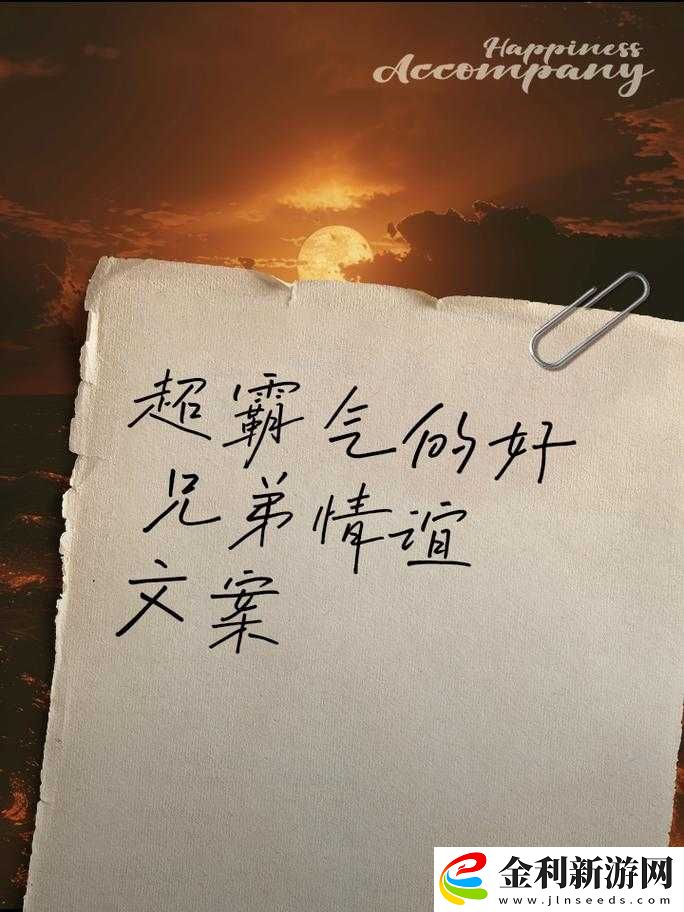 Happiness
Accompany
超霸气的好
兄弟情谊
文案
金利新游网
www.jlnseeds.com